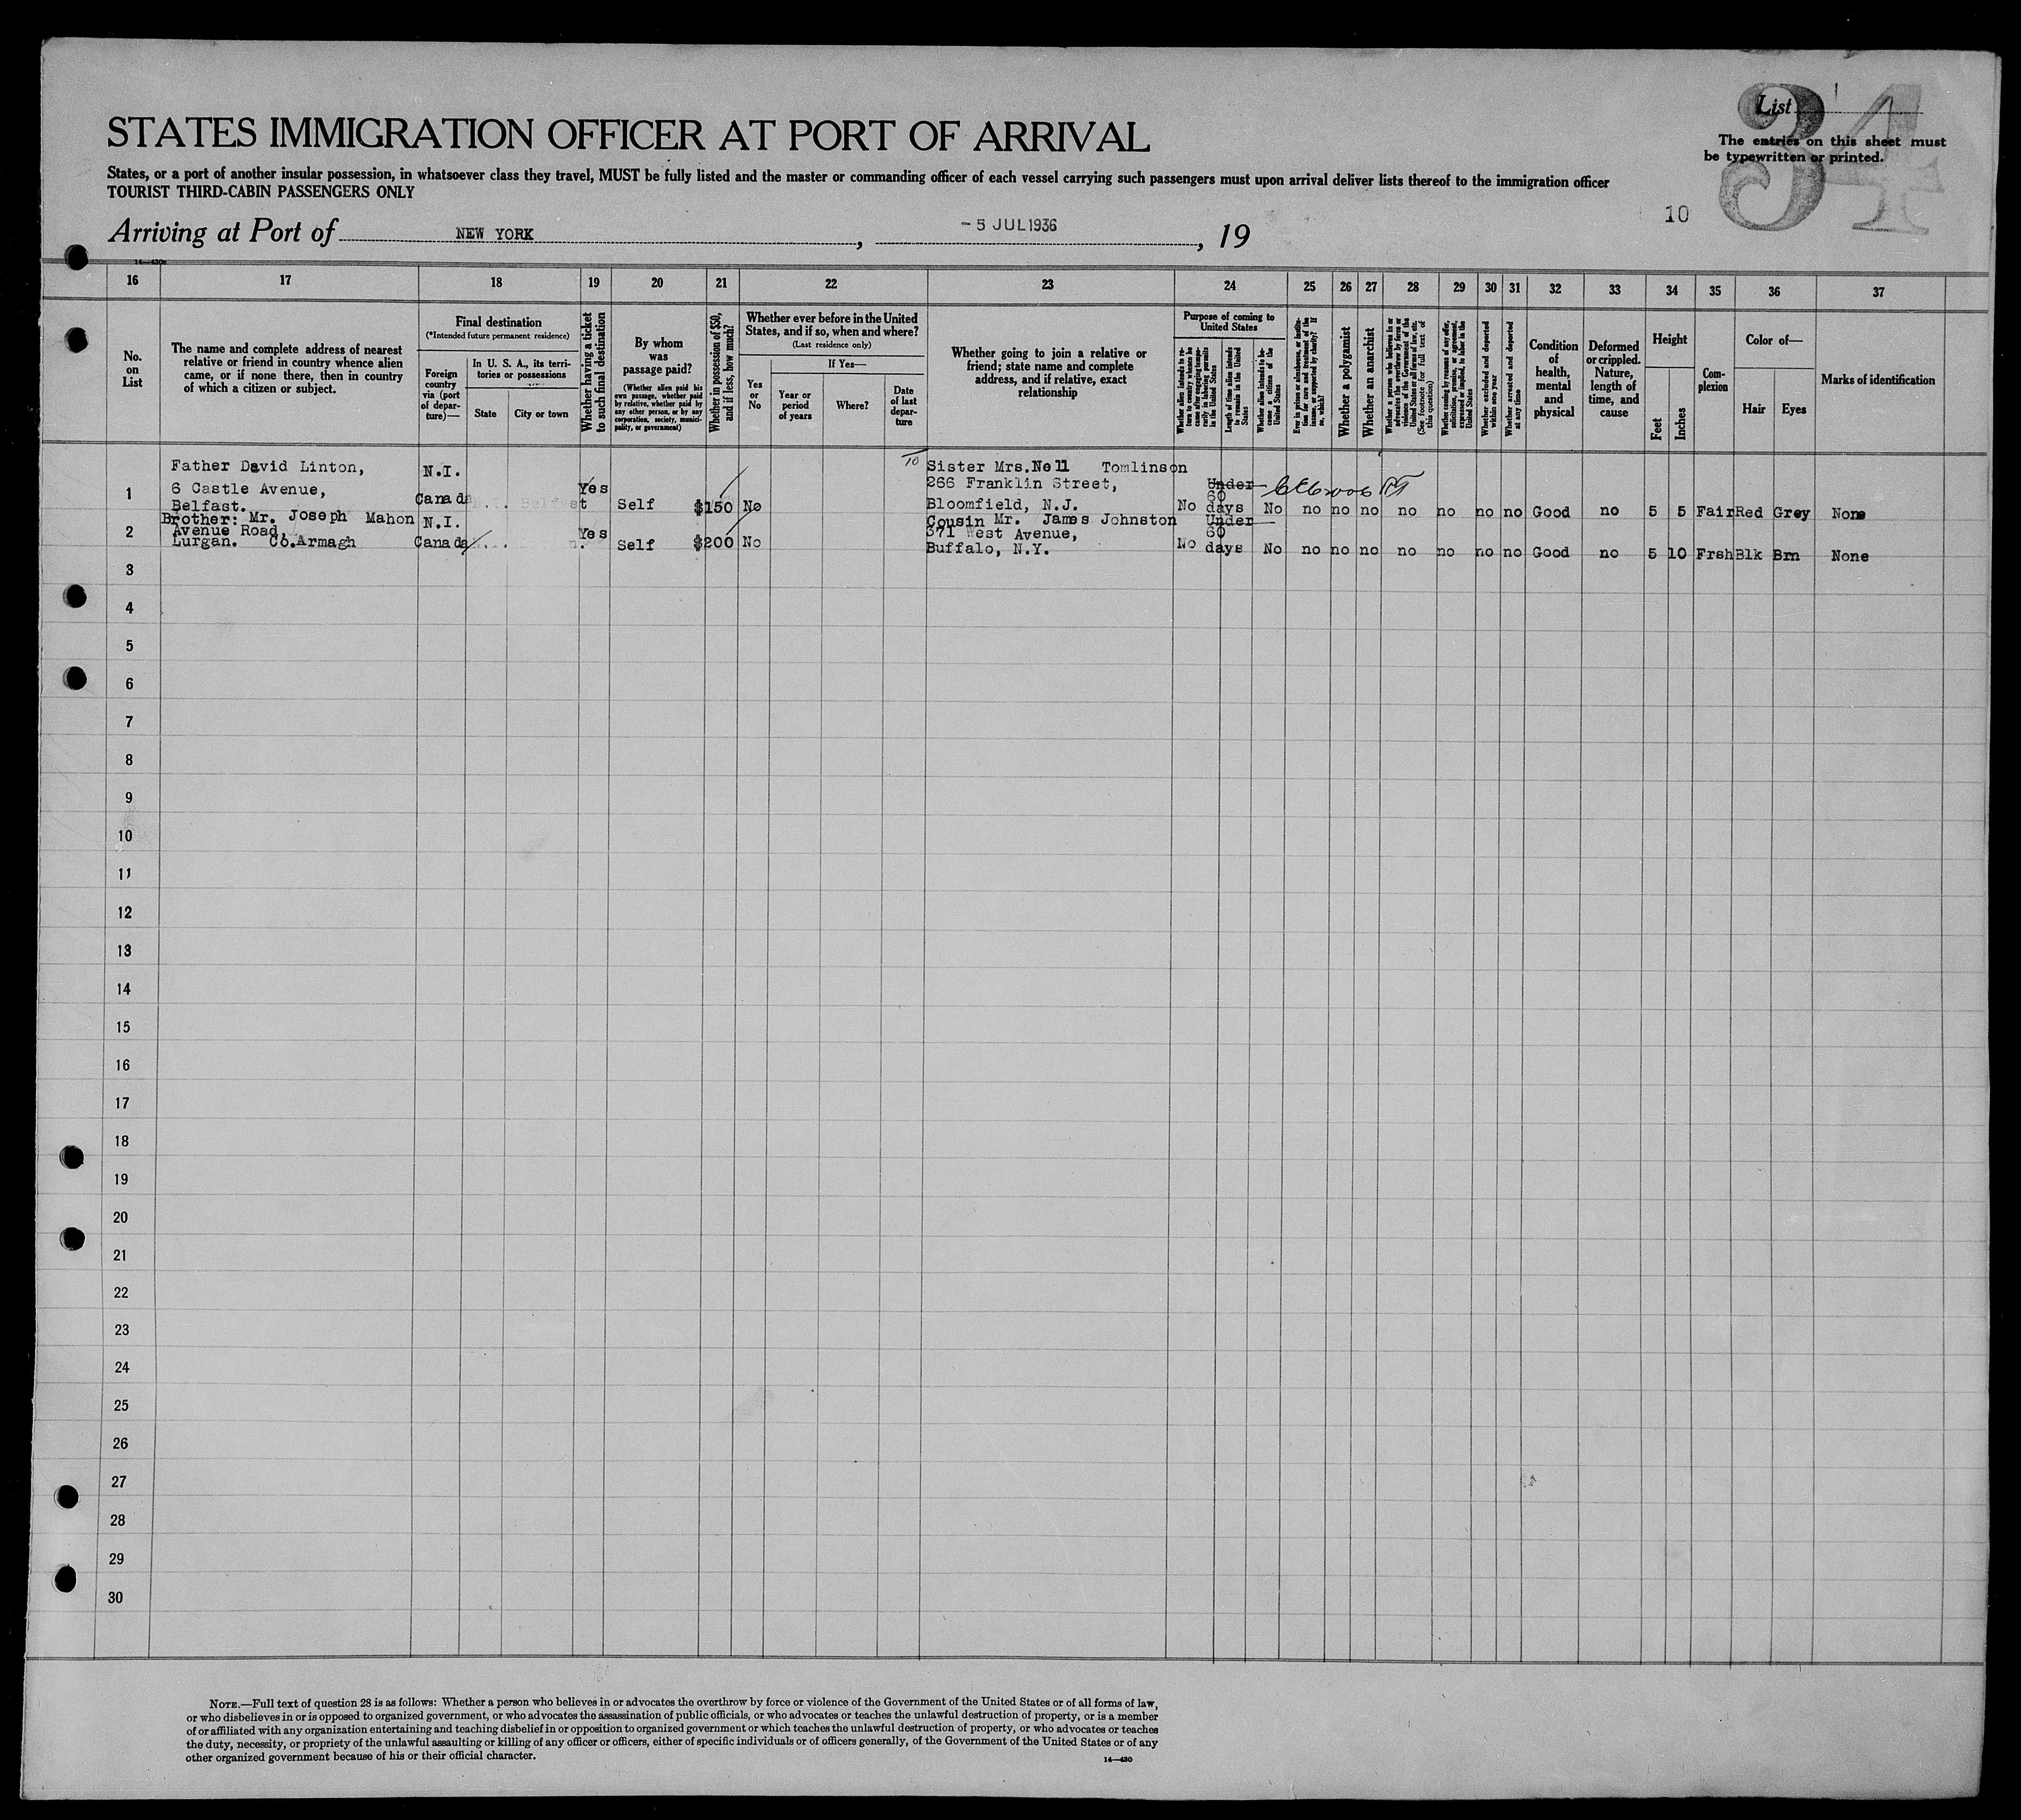 List
34
The entries on this sheet must
be typewritten or printed.
STATES IMMIGRATION OFFICER AT PORT OF ARRIVAL
States, or a port of another insular possession, in whatsoever class they travel, MUST be fully listed and the master or commanding officer of each vessel carrying such passengers must upon arrival deliver lists thereof to the immigration officer
TOURIST THIRD-CABIN PASSENGERS ONLY
10
Arriving at Port of NEW YORK, - 5 JUL 1936, 19
16 17 18 19 20 21 22 23 24 25 26 27 28 29 30 31 32 33 34 35 36 37
No.
on
List
The name and complete address of nearest
relative or friend in country whence alien
came, or if none there, then in country
of which a citizen or subject.
Final destination
(*Intended future permanent residence)
Foreign
country
via (port
of depar-
ture)—
In U. S. A., its terri-
tories or possessions
State
City or town
Whether having a ticket
to such final destination
By whom
was
passage paid?
(Whether alien paid his
own passage, whether paid
by relative, whether paid by
any other person, or by any
corporation, society, munici-
pality, or government)
Whether in possession of $50,
and if less, how much?
Whether ever before in the United
States, and if so, when and where?
(Last residence only)
Yes
or
No
If Yes—
Year or
period
of years
Where?
Date
of last
depar-
ture
Whether going to join a relative or
friend; state name and complete
address, and if relative, exact
relationship
Purpose of coming to
United States
Whether alien intends to re-
turn to country whence he
came after engaging tempo-
rarily in laboring pursuits
in the United States
Length of time alien intends
to remain in the United
States
Whether alien intends to be-
come a citizen of the
United States
Ever in prison or almshouse, or institu-
tion for care and treatment of the
insane, or supported by charity? If
so, which?
Whether a polygamist
Whether an anarchist
Whether a person who believes in or
advocates the overthrow by force or
violence of the Government of the
United States or all forms of law, etc.
(See footnote for full text of
this question)
Whether coming by reason of any offer,
solicitation, promise, or agreement,
expressed or implied, to labor in the
United States
Whether excluded and deported
within one year
Whether arrested and deported
at any time
Condition
of
health,
mental
and
physical
Deformed
or crippled.
Nature,
length of
time, and
cause
Height
Feet
Inches
Com-
plexion
Color of—
Hair
Eyes
Marks of identification
10
Father David Linton, N.I. Sister Mrs. Nell Tomlinson
6 Castle Avenue, Yes 266 Franklin Street, Under
1 Belfast. Canada Self $150 No Bloomfield, N.J. No 60 days No no no no no no no no Good no 5 5 Fair Red Grey None
Brother: Mr. Joseph Mahon N.I. Cousin Mr. James Johnston Under
2 Avenue Road, Yes 371 West Avenue, 60
Lurgan. Co. Armagh Canada Self $200 No Buffalo, N.Y. No days No no no no no no no no Good no 5 10 Frsh Blk Brn None
3
4
5
6
7
8
9
10
11
12
13
14
15
16
17
18
19
20
21
22
23
24
25
26
27
28
29
30
NOTE.—Full text of question 28 is as follows: Whether a person who believes in or advocates the overthrow by force or violence of the Government of the United States or of all forms of law,
or who disbelieves in or is opposed to organized government, or who advocates the assassination of public officials, or who advocates or teaches the unlawful destruction of property, or is a member
of or affiliated with any organization entertaining and teaching disbelief in or opposition to organized government or which teaches the unlawful destruction of property, or who advocates or teaches
the duty, necessity, or propriety of the unlawful assaulting or killing of any officer or officers, either of specific individuals or of officers generally, of the Government of the United States or of any
other organized government because of his or their official character.
14—430